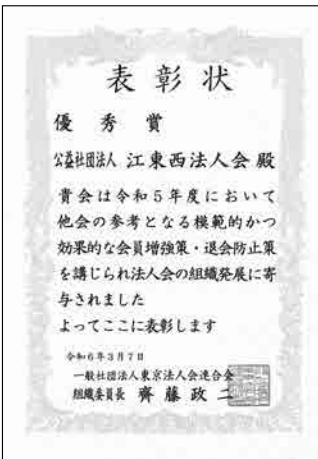 表彰状
優秀賞
公益社団法人 江東西法人会 殿
貴会は令和5年度において
他会の参考となる模範的かつ
効果的な会員増強策・退会防止策
を講じられ法人会の組織発展に寄
与されました
よってここに表彰します
令和6年3月7日
一般社団法人東京法人会連合会
組織委員長 齊藤政二